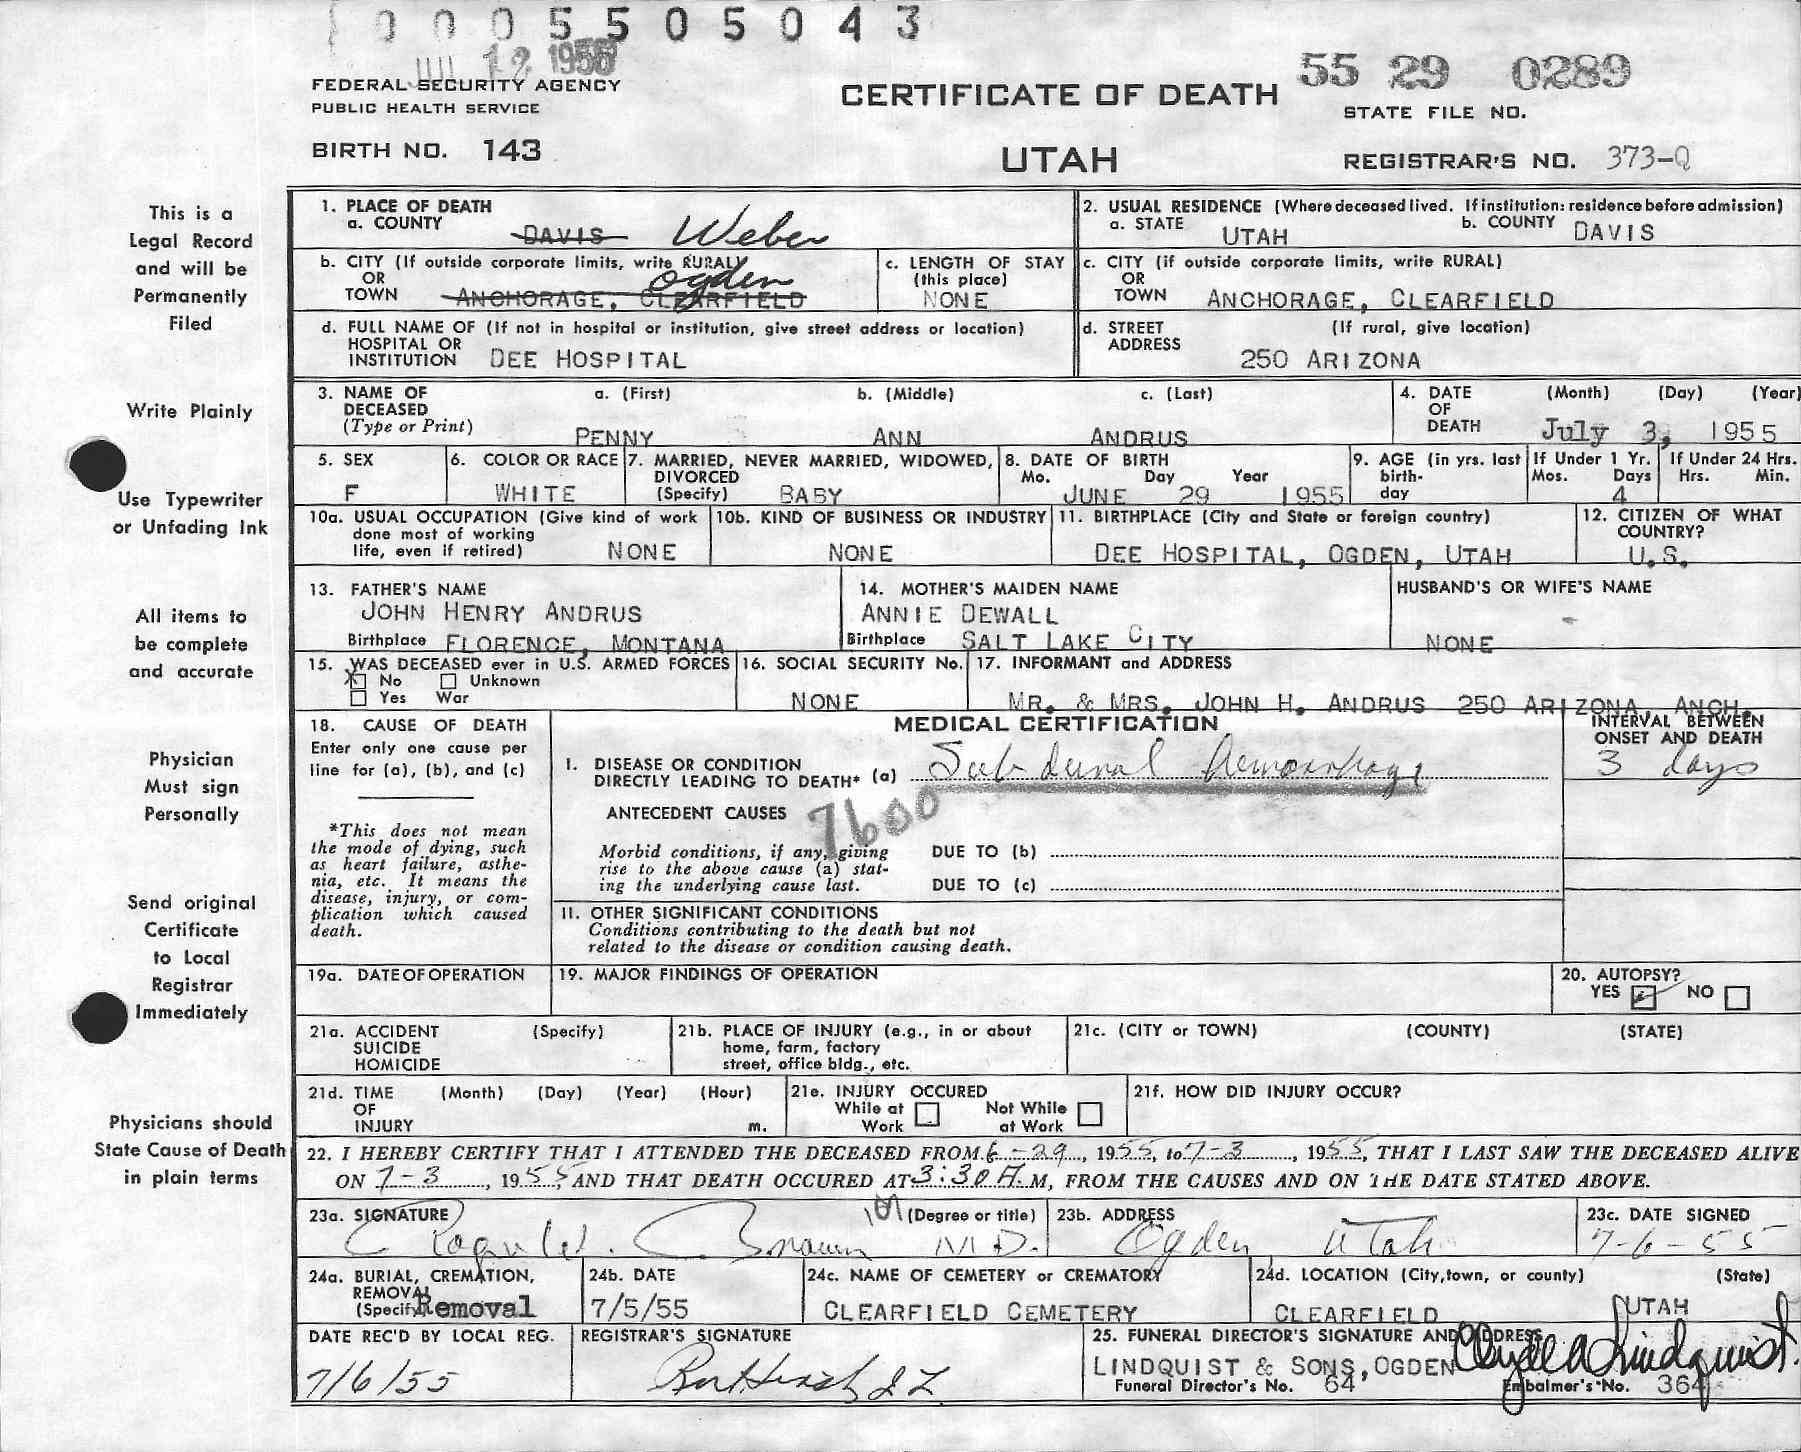 0005505043
12 1955
FEDERAL SECURITY AGENCY
PUBLIC HEALTH SERVICE
BIRTH NO. 143
CERTIFICATE OF DEATH
UTAH
55 29 0289
STATE FILE NO.
REGISTRAR'S NO. 373-Q
This is a
Legal Record
and will be
Permanently
Filed
Write Plainly
Use Typewriter
or Unfading Ink
All items to
be complete
and accurate
Physician
Must sign
Personally
Send original
Certificate
to Local
Registrar
Immediately
Physicians should
State Cause of Death
in plain terms
1. PLACE OF DEATH
a. COUNTY DAVIS Weber
2. USUAL RESIDENCE (Where deceased lived. If institution: residence before admission)
a. STATE UTAH b. COUNTY DAVIS
b. CITY (If outside corporate limits, write RURAL)
OR
TOWN ANCHORAGE, CLEARFIELD Ogden
c. LENGTH OF STAY
(this place)
NONE
c. CITY (if outside corporate limits, write RURAL)
OR
TOWN ANCHORAGE, CLEARFIELD
d. FULL NAME OF (If not in hospital or institution, give street address or location)
HOSPITAL OR
INSTITUTION DEE HOSPITAL
d. STREET (If rural, give location)
ADDRESS
250 ARIZONA
3. NAME OF a. (First) b. (Middle) c. (Last)
DECEASED
(Type or Print) PENNY ANN ANDRUS
4. DATE (Month) (Day) (Year)
OF
DEATH July 3, 1955
5. SEX
F
6. COLOR OR RACE
WHITE
7. MARRIED, NEVER MARRIED, WIDOWED,
DIVORCED
(Specify) BABY
8. DATE OF BIRTH
Mo. Day Year
JUNE 29 1955
9. AGE (in yrs. last
birth-
day
If Under 1 Yr.
Mos. Days
4
If Under 24 Hrs.
Hrs. Min.
10a. USUAL OCCUPATION (Give kind of work
done most of working
life, even if retired) NONE
10b. KIND OF BUSINESS OR INDUSTRY
NONE
11. BIRTHPLACE (City and State or foreign country)
DEE HOSPITAL, OGDEN, UTAH
12. CITIZEN OF WHAT
COUNTRY?
U.S.
13. FATHER'S NAME
JOHN HENRY ANDRUS
Birthplace FLORENCE, MONTANA
14. MOTHER'S MAIDEN NAME
ANNIE DEWALL
Birthplace SALT LAKE CITY
HUSBAND'S OR WIFE'S NAME
NONE
15. WAS DECEASED ever in U.S. ARMED FORCES
X No Unknown
Yes War
16. SOCIAL SECURITY No.
NONE
17. INFORMANT and ADDRESS
MR. & MRS. JOHN H. ANDRUS 250 ARIZONA, ANCH.
18. CAUSE OF DEATH
Enter only one cause per
line for (a), (b), and (c)
*This does not mean
the mode of dying, such
as heart failure, asthe-
nia, etc. It means the
disease, injury, or com-
plication which caused
death.
MEDICAL CERTIFICATION
INTERVAL BETWEEN
ONSET AND DEATH
I. DISEASE OR CONDITION
DIRECTLY LEADING TO DEATH* (a) Sub dural hemorrhage
3 days
ANTECEDENT CAUSES 7600
Morbid conditions, if any, giving
rise to the above cause (a) stat-
ing the underlying cause last.
DUE TO (b)
DUE TO (c)
II. OTHER SIGNIFICANT CONDITIONS
Conditions contributing to the death but not
related to the disease or condition causing death.
19a. DATE OF OPERATION
19. MAJOR FINDINGS OF OPERATION
20. AUTOPSY?
YES ✓ NO
21a. ACCIDENT (Specify)
SUICIDE
HOMICIDE
21b. PLACE OF INJURY (e.g., in or about
home, farm, factory
street, office bldg., etc.
21c. (CITY or TOWN) (COUNTY) (STATE)
21d. TIME (Month) (Day) (Year) (Hour)
OF
INJURY m.
21e. INJURY OCCURED
While at Not While
Work at Work
21f. HOW DID INJURY OCCUR?
22. I HEREBY CERTIFY THAT I ATTENDED THE DECEASED FROM 6-29, 1955, to 7-3, 1955, THAT I LAST SAW THE DECEASED ALIVE
ON 7-3, 1955, AND THAT DEATH OCCURED AT 3:30 A.M, FROM THE CAUSES AND ON THE DATE STATED ABOVE.
23a. SIGNATURE (Degree or title)
Brown M.D.
23b. ADDRESS
Ogden, Utah
23c. DATE SIGNED
7-6-55
24a. BURIAL, CREMATION,
REMOVAL
(Specify) Removal
24b. DATE
7/5/55
24c. NAME OF CEMETERY or CREMATORY
CLEARFIELD CEMETERY
24d. LOCATION (City, town, or county) (State)
CLEARFIELD UTAH
DATE REC'D BY LOCAL REG.
7/6/55
REGISTRAR'S SIGNATURE
25. FUNERAL DIRECTOR'S SIGNATURE AND ADDRESS
LINDQUIST & SONS, OGDEN Clyde A Lindquist
Funeral Director's No. 64 Embalmer's No. 364